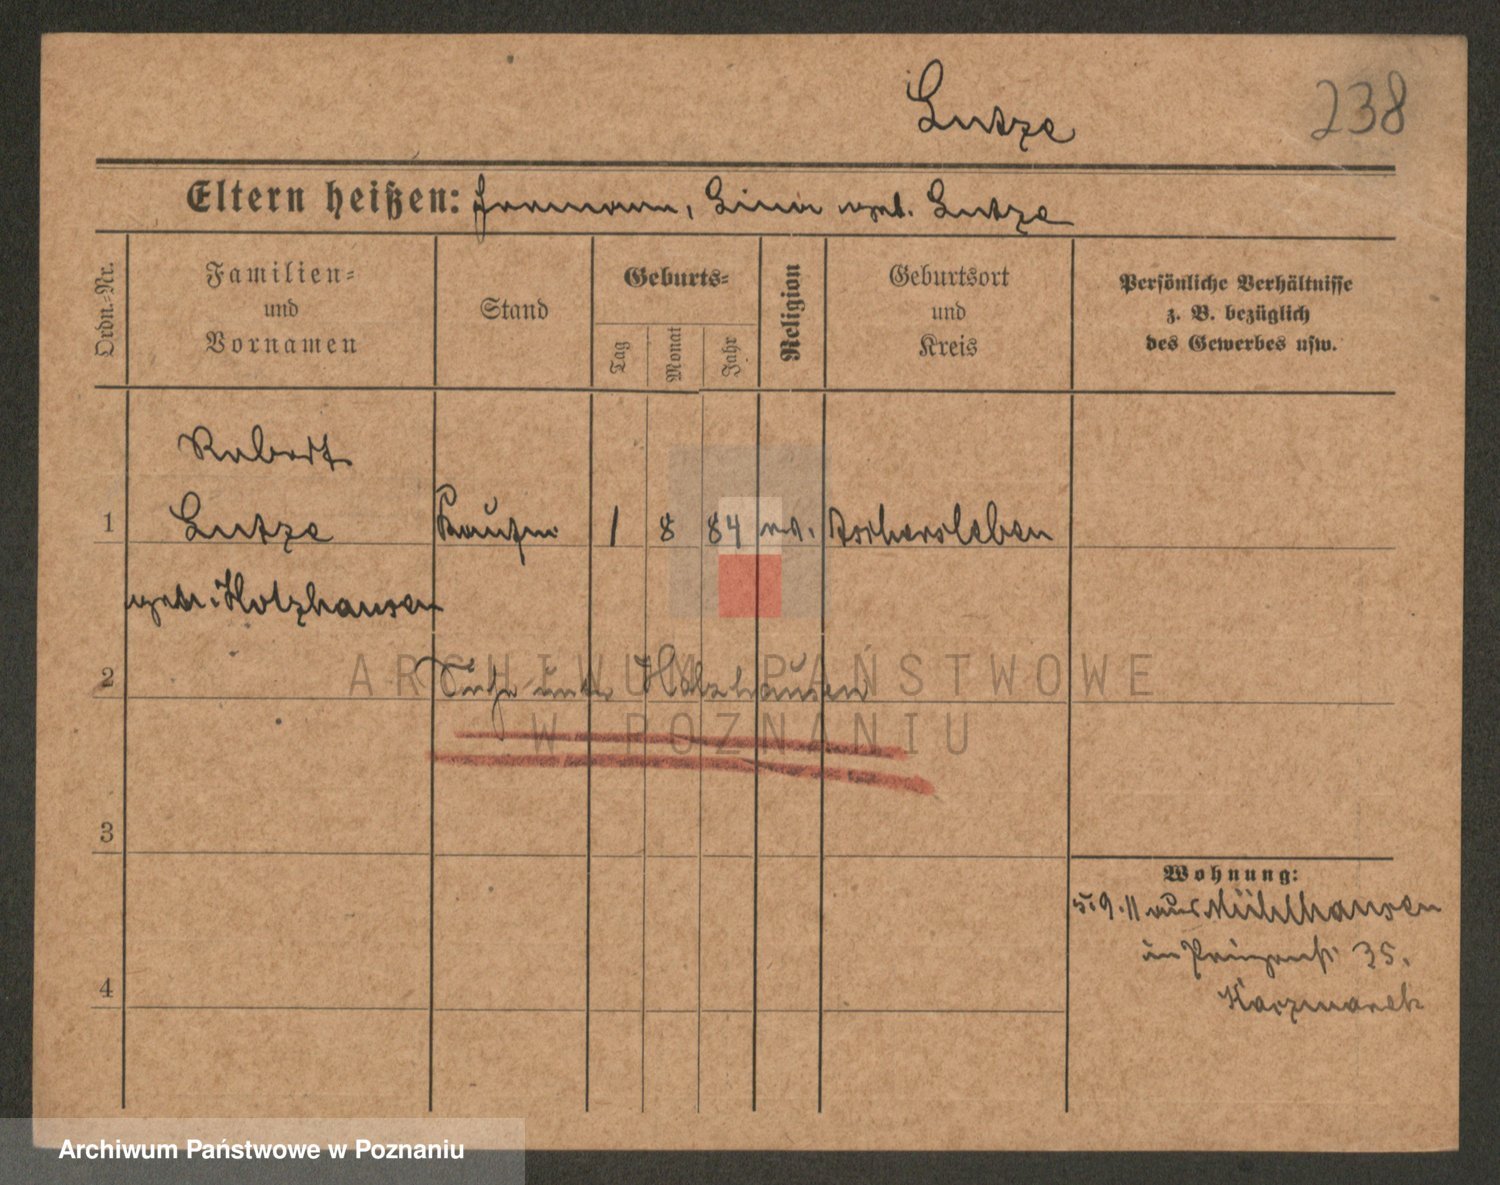 Lutze
238
Eltern heißen: Hermann, Lina geb. Lutze
Ordn.=Nr.
Familien=
und
Vornamen
Stand
Geburts=
Tag
Monat
Jahr
Religion
Geburtsort
und
Kreis
Persönliche Verhältnisse
z. B. bezüglich
des Gewerbes usw.
Robert
1 Lutze Kaufm. 1 8 84 ev. Aschersleben
Holzhausen
2 Siehe unter Holzhausen
ARCHIWUM PAŃSTWOWE
W POZNANIU
3
Wohnung:
5.9.11 aus Mühlhausen
in Prinzenstr. 35.
4
Kaczmarek
Archiwum Państwowe w Poznaniu